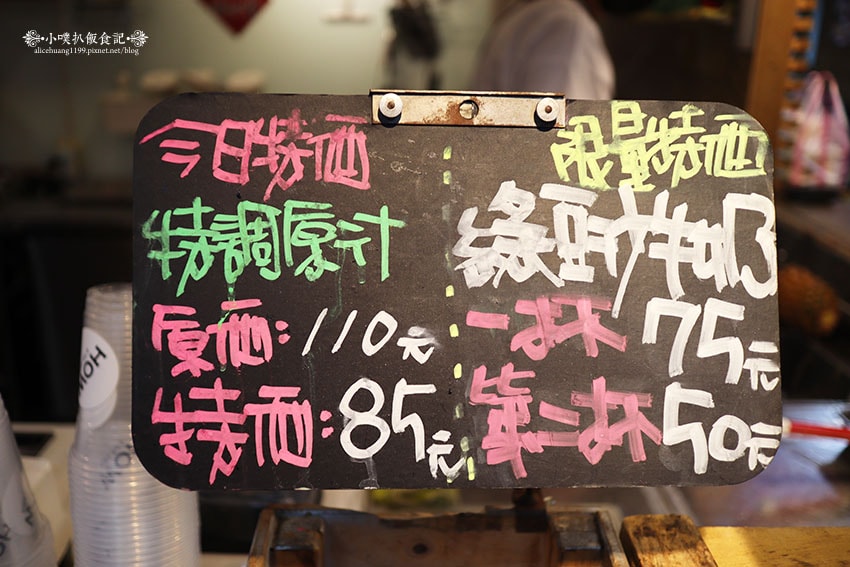 小噗扒飯食記
alicehuang1199.pixnet.net/blog
今日特価
特調原汁
原価:110元
特価:85元
限量特価
綠豆沙牛奶
一杯 75元
第二杯 50元